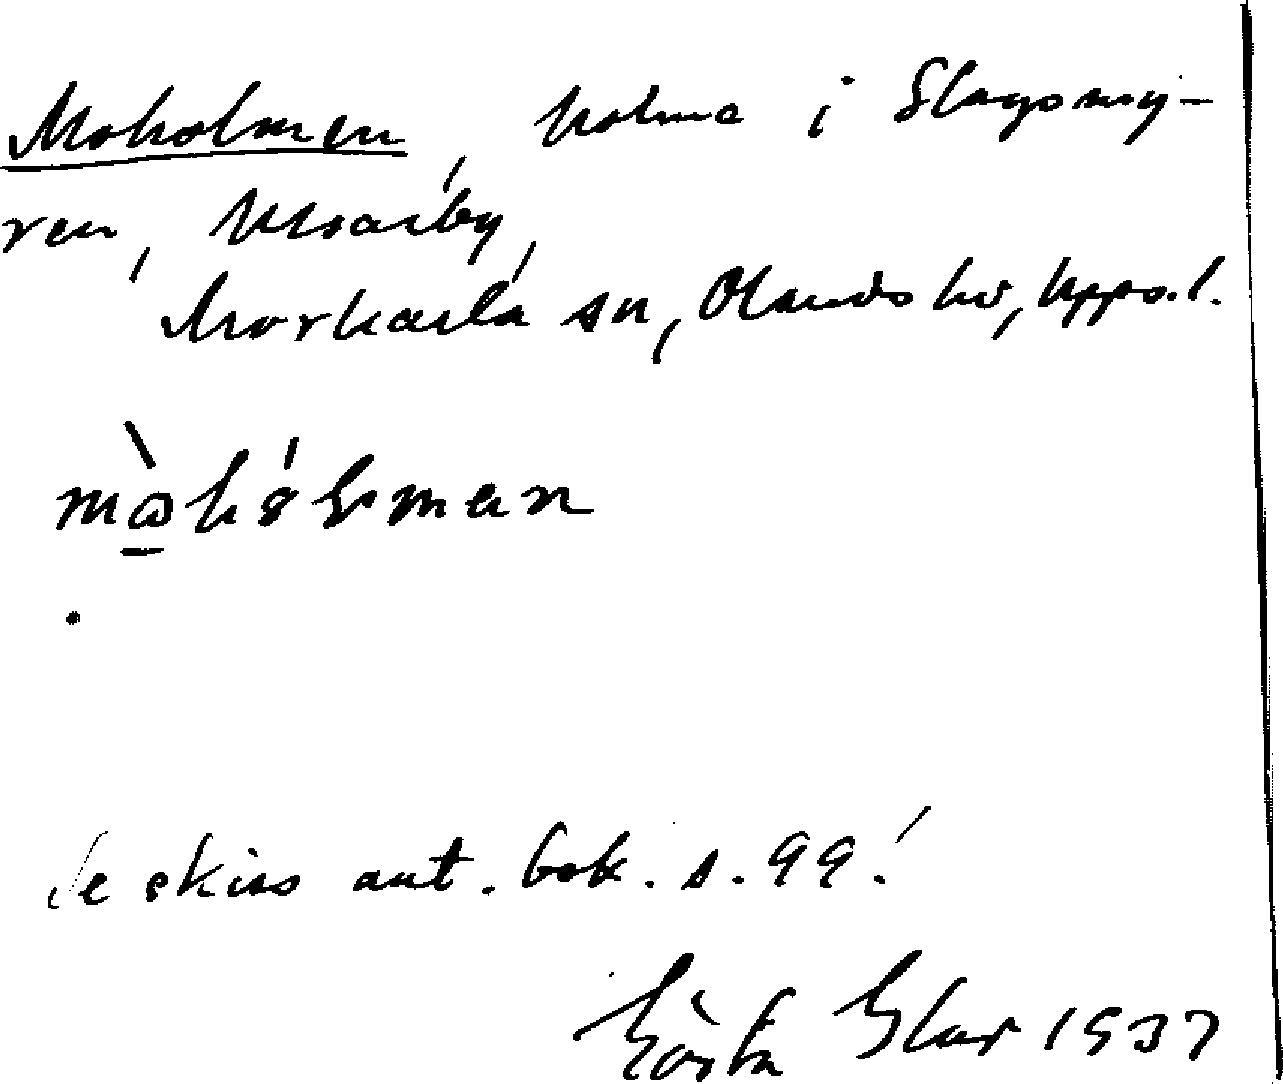 Moholmen, holme i Slagsmy-
ren, Kroarby,
Morkarla sn, Olands hd, Uppsa.l.
Se skiss ant. bok. s. 99!
Gösta Elar 1937